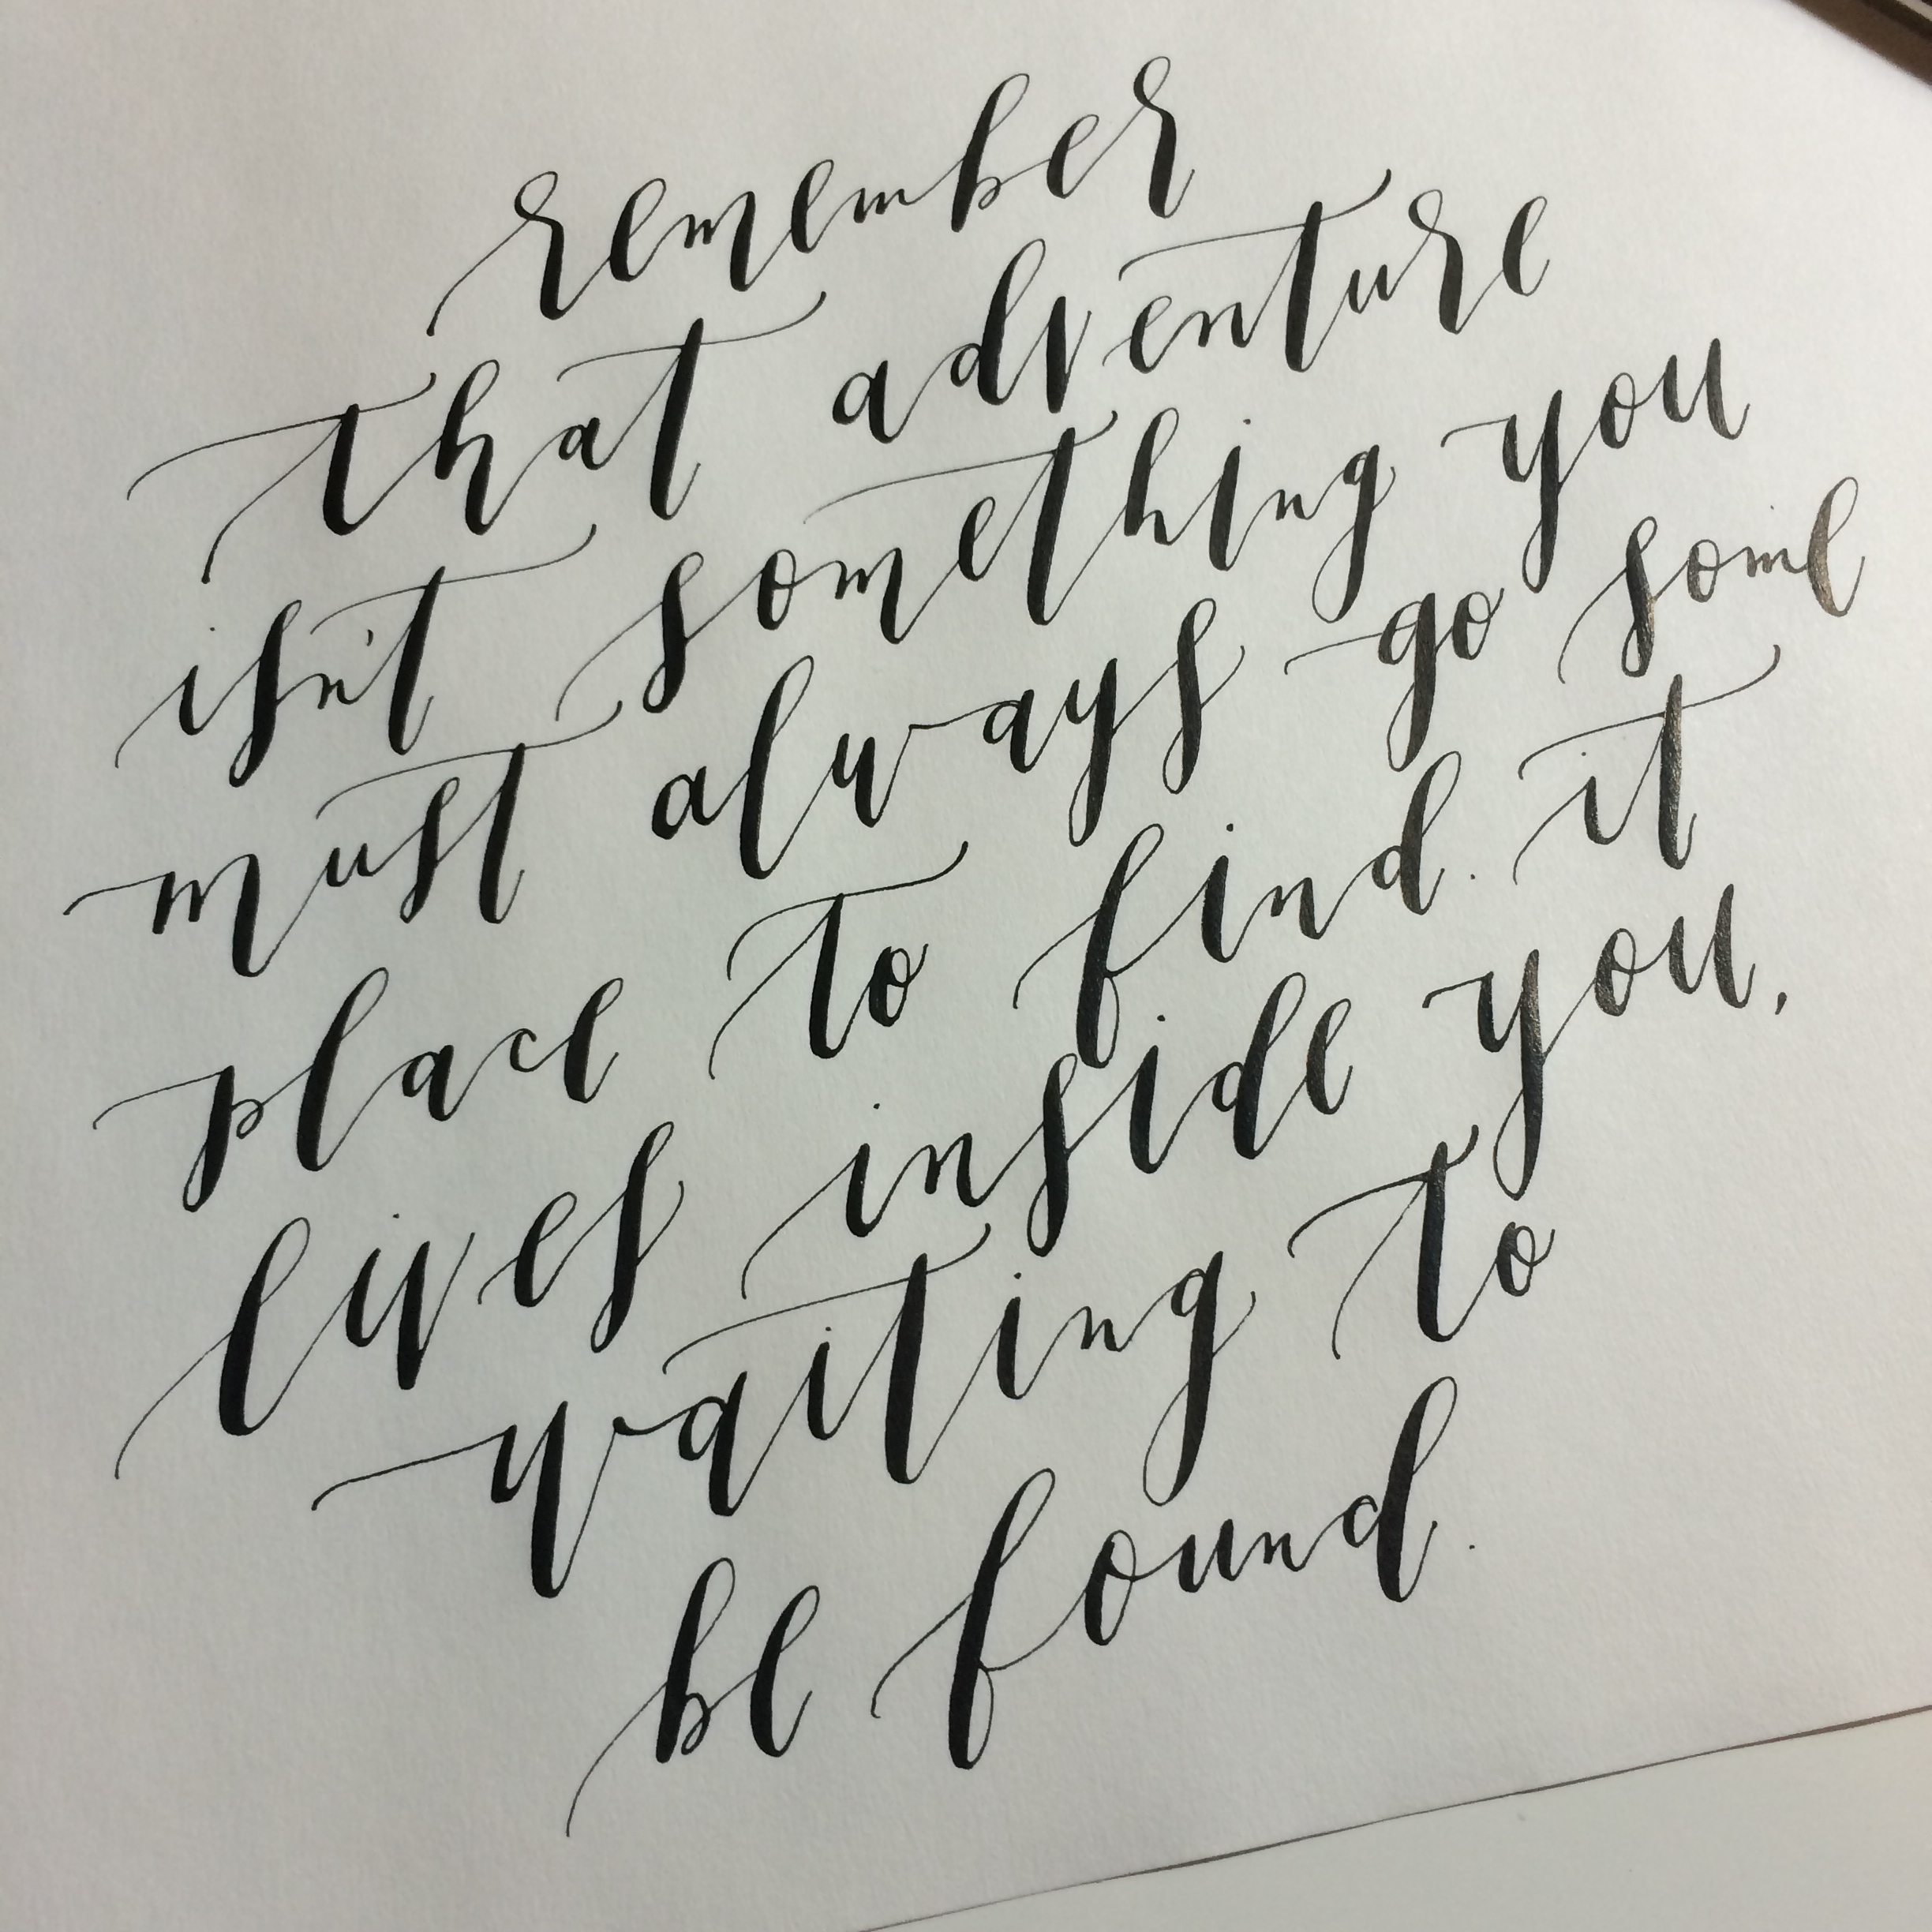 remember
that adventure
isn't something you
must always go some
place to find. it
lives inside you,
waiting to
be found.